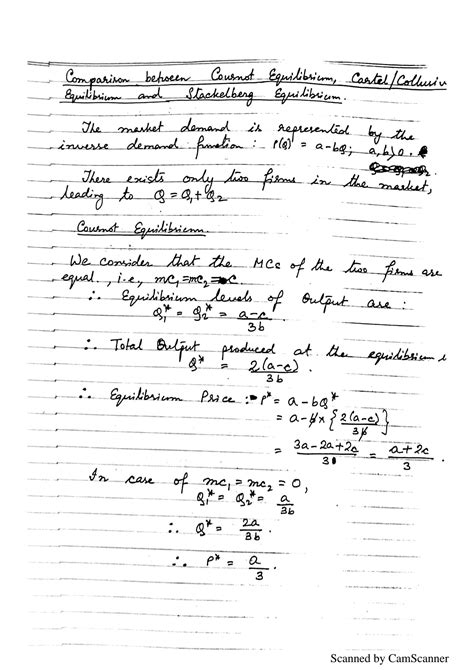 Comparison between Cournot Equilibrium, Cartel/Collusiv
Equilibrium and Stackelberg Equilibrium.
The market demand is represented by the
inverse demand function : P(Q) = a-bQ; a,b>0.
There exists only two firms in the market,
leading to Q = Q₁+Q₂
Cournot Equilibrium.
We consider that the MCs of the two firms are
equal., i.e., mc₁=mc₂=c
∴ Equilibrium levels of Output are :
Q₁* = Q₂* = a-c/3b
∴ Total Output produced at the equilibrium i
Q* = 2(a-c)/3b
∴ Equilibrium Price :- P* = a-bQ*
= a-b×{2(a-c)/3b}
= 3a-2a+2c/3 = a+2c/3
In case of mc₁=mc₂=0,
Q₁* = Q₂* = a/3b
∴ Q* = 2a/3b
∴ P* = a/3.
Scanned by CamScanner